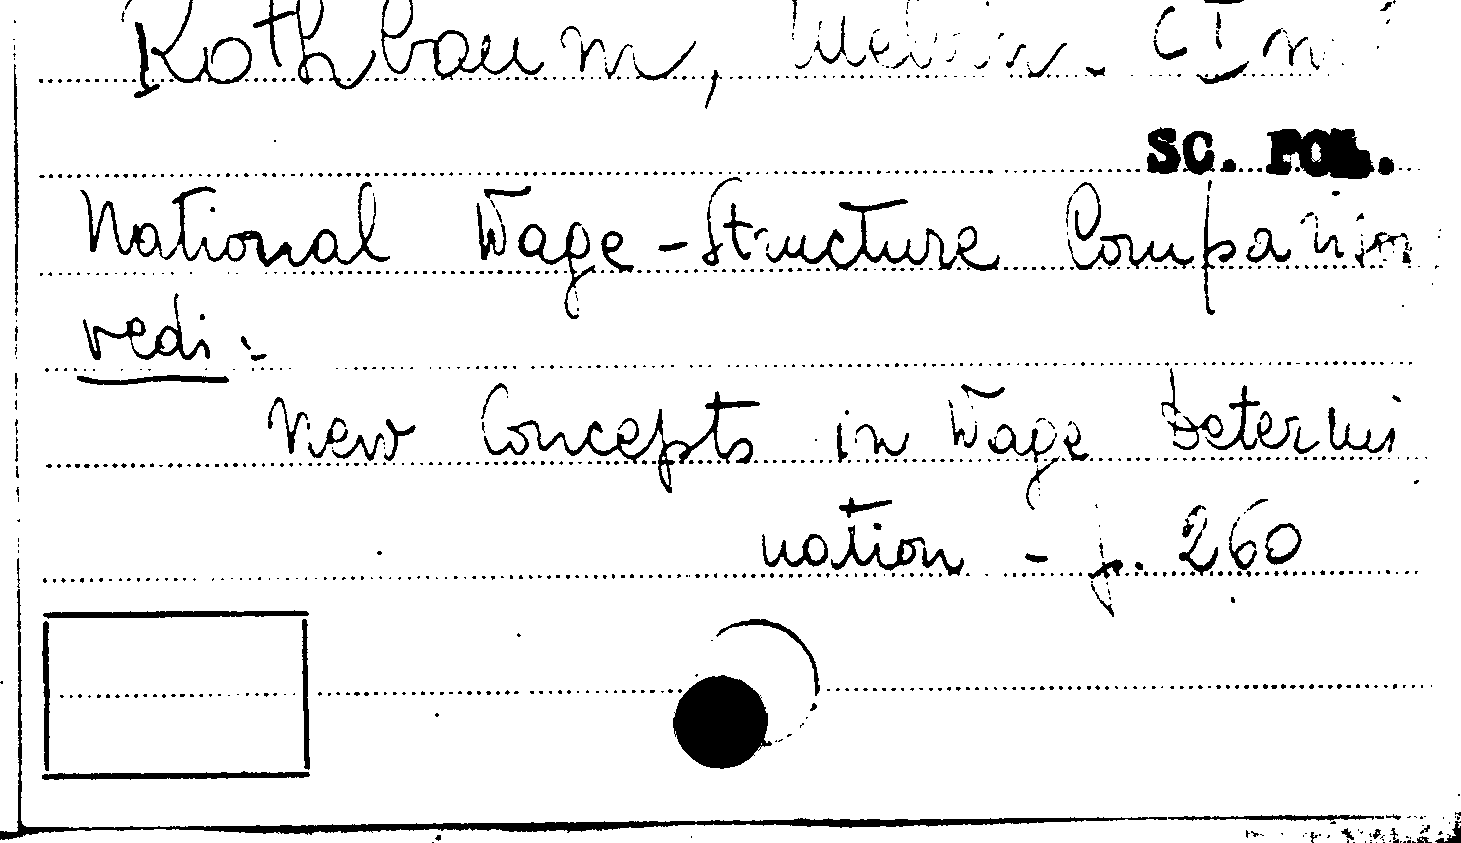 Rothbaum, Melvin.
SC. POL.
National Wage-Structure Comparison
vedi:
New Concepts in Wage Determi
nation - p. 260